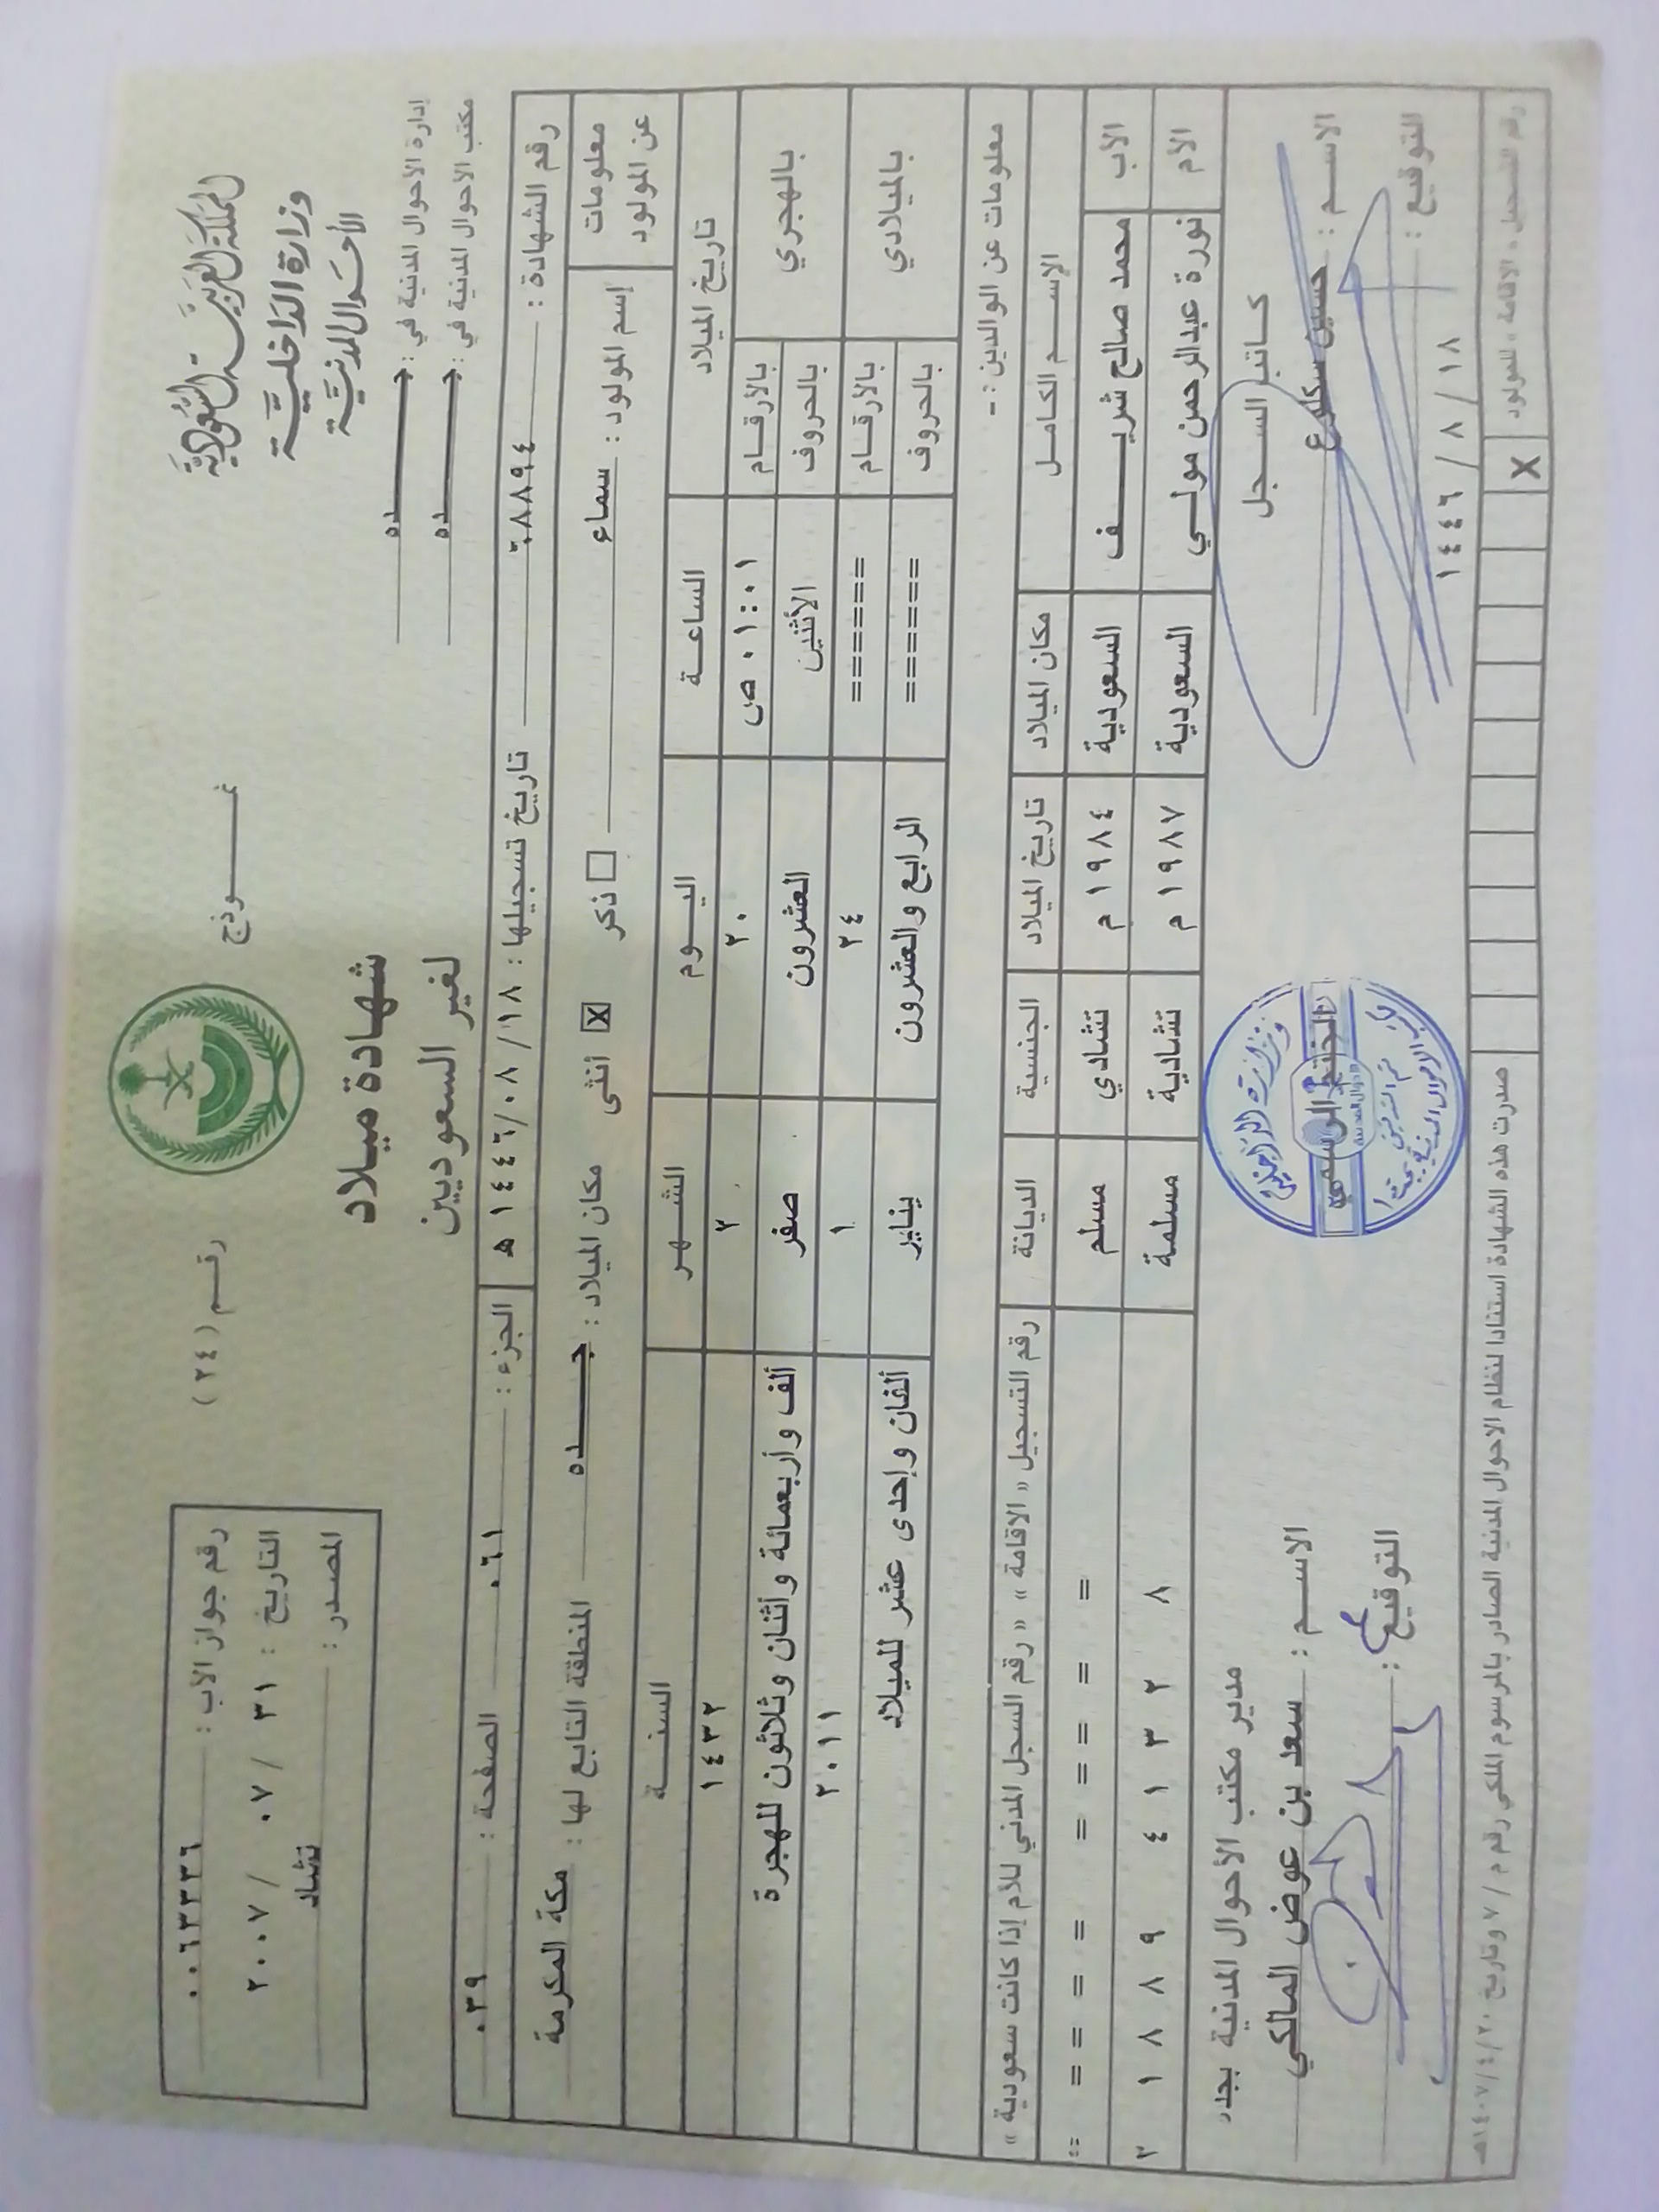 المملكة العربية السعودية
وزارة الداخلية
الأحوال المدنية
إدارة الأحوال المدنية في : جـــــده
مكتب الأحوال المدنية في : جـــــده
نمـــــوذج رقــم ( ٢٤ )
شهادة ميلاد
لغير السعوديين
رقم جواز الأب : ٠٠٦٣٣٣٦
التاريخ : ٣١ / ٠٧ / ٢٠٠٧
المصدر : تشاد
رقم الشهادة : ٦٨٨٩٤ تاريخ تسجيلها : ١٨ / ٠٨ / ١٤٤٦ هـ الجزء : ٠٦١ الصفحة : ٠٣٩
معلومات عن المولود
إسم المولود : سماء ذكر أنثى X مكان الميلاد : جـــــده المنطقة التابع لها : مكة المكرمة
تاريخ الميلاد الساعـة اليـــوم الشـــهـر السنـــة
بالهجري بالأرقــام ٠١:٠١ ص ٢٠ ٢ ١٤٣٢
بالحروف الأثنين العشرون صفر ألف وأربعمائة وأثنان وثلاثون للهجرة
بالميلادي بالأرقــام ====== ٢٤ ١ ٢٠١١
بالحروف ====== الرابع والعشرون يناير ألفان وإحدى عشر للميلاد
معلومات عن الوالدين : -
الإســم الكامــل مكان الميلاد تاريخ الميلاد الجنسية الديانة رقم التسجيل « الاقامة » « رقم السجل المدني للأم إذا كانت سعودية »
الأب محمد صالح شريــــف السعودية ١٩٨٤ م تشادي مسلم = = = = = = =
الأم نورة عبدالرحمن مولـي السعودية ١٩٨٧ م تشادية مسلمة ٢ ١ ٨ ٨ ٩ ٤ ١ ٣ ٢ ٨
كــاتب السـجل
الاســم : حسين
التوقيع :
١٨ / ٨ / ١٤٤٦
وزارة الداخلية
الختم الرسمي
الأحوال المدنية
مدير مكتب الأحوال المدنية بجده
الاســم : سعد بن عوض المالكي
التوقيع :
رقم تسجيل « الاقامة » للمولود X
صدرت هذه الشهادة استنادا لنظام الاحوال المدنية الصادر بالمرسوم الملكي رقم م / ٧ وتاريخ ١٤٠٧/٤/٢٠هـ